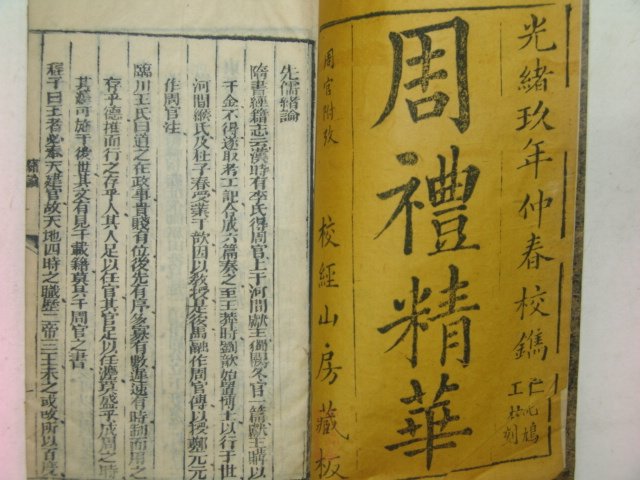 光緒玖年仲春校鐫
仁記鴆
工林刻
周禮精華
周官附攷
校經山房藏板
先儒緒論
隋書經籍志云漢時有李氏得周官上于河間獻王獨闕冬官一篇獻王購以
千金不得遂取考工記以合成六篇奏之至王莽時劉歆始置博士以行于世
河間緱氏及杜子春受業于歆因以教授是後馬融作周官傳以授鄭元元
作周官注
臨川王氏曰道之在政事貴賤有位後先有序多寡有數遲速有時制而用之
存乎法推而行之存乎人其人足以任官其官足以任灋莫盛乎成周之時
其灋可施于後世其文有見于載籍莫具于周官之書
程子曰王者必奉天建官故天地四時之職歷二帝三王未之或改所以百度
緒論